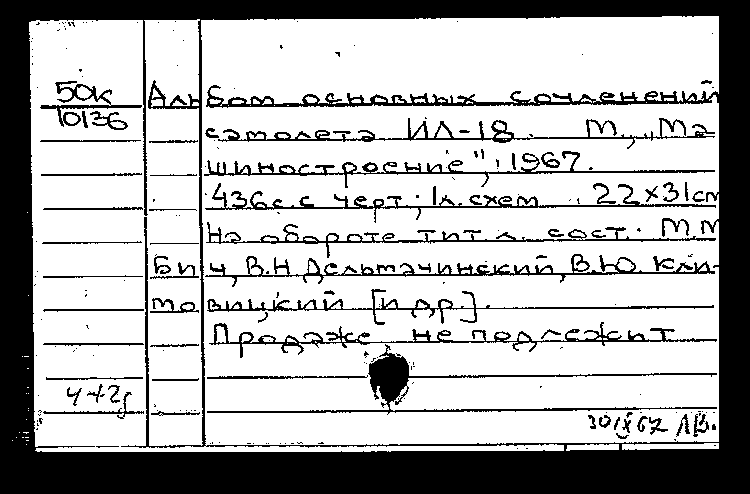 50к Альбом основных сочленений
10136 самолета ИЛ-18. М., „Ма
шиностроение", 1967.
436с. с черт.; 1л. схем. 22×31см
На обороте тит. л. сост. М.М
Бич, В.Н. Дельтачинский, В.Ю. Кли-
мовицкий [и др].
Продаже не подлежит
30/IX 67 ЛВ.